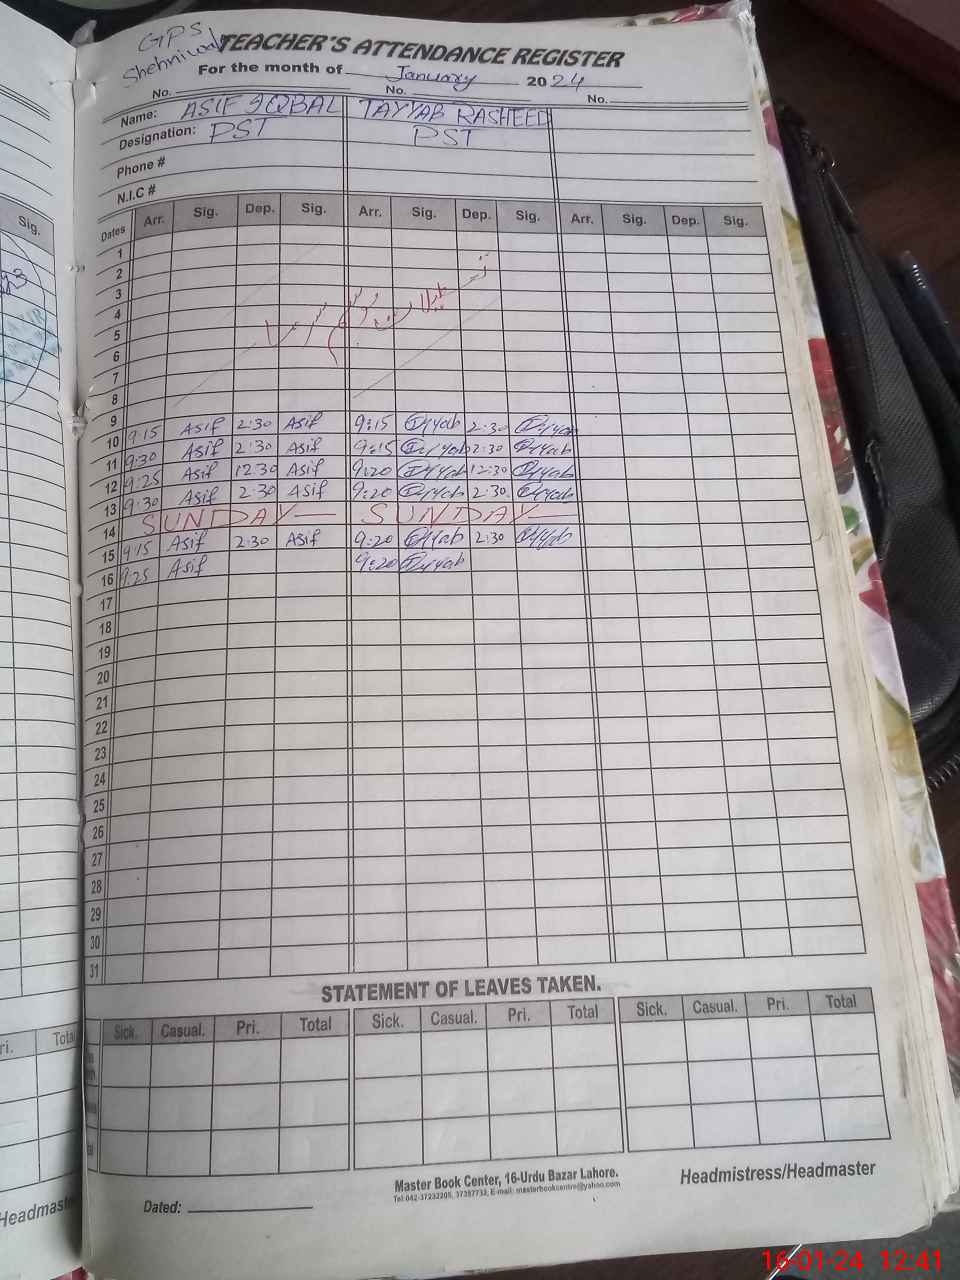 GPS
Shehniwal
TEACHER'S ATTENDANCE REGISTER
For the month of January 2024
No. No. No.
Name: ASIF IQBAL TAYYAB RASHEED
Designation: PST PST
Phone #
N.I.C #
Dates Arr. Sig. Dep. Sig. Arr. Sig. Dep. Sig. Arr. Sig. Dep. Sig.
1
2
3
تعطیلات موسم سرما
4
5
6
7
8
9
10 9:15 Asif 2:30 Asif 9:15 Tayyab 2:30 Tayyab
11 9:30 Asif 2:30 Asif 9:15 Tayyab 2:30 Tayyab
12 9:25 Asif 12:30 Asif 9:20 Tayyab 12:30 Tayyab
13 9:30 Asif 2:30 Asif 9:20 Tayyab 2:30 Tayyab
14 SUNDAY— SUNDAY—
15 9:15 Asif 2:30 Asif 9:20 Tayyab 2:30 Tayyab
16 9:25 Asif 9:20 Tayyab
17
18
19
20
21
22
23
24
25
26
27
28
29
30
31
STATEMENT OF LEAVES TAKEN.
Sick. Casual. Pri. Total Sick. Casual. Pri. Total Sick. Casual. Pri. Total
Master Book Center, 16-Urdu Bazar Lahore.
Headmistress/Headmaster
Dated:
Sig.
ri. Total
Headmast
16-01-24 12:41